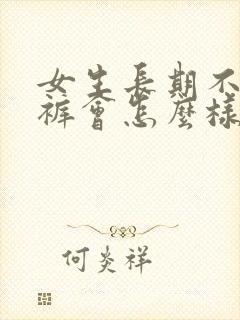 女生長期不
褲會怎麼樣
何炎祥